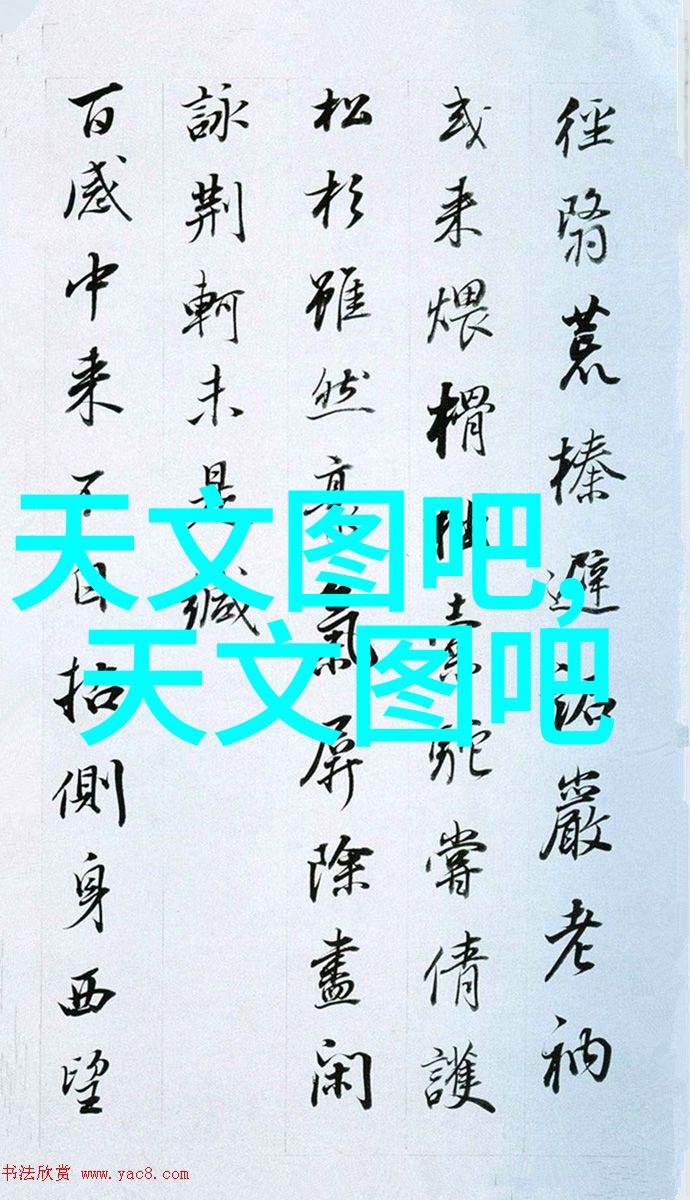 徑翳荒榛避詔嚴老衲
或来煨榾柮橐駝嘗倩護
松杉雖然豪氣屏除盡閑
詠荆軻未是緘
百感中来不自拈側身西望
天文图吧,
天文图吧
书法欣赏 www.yac8.com